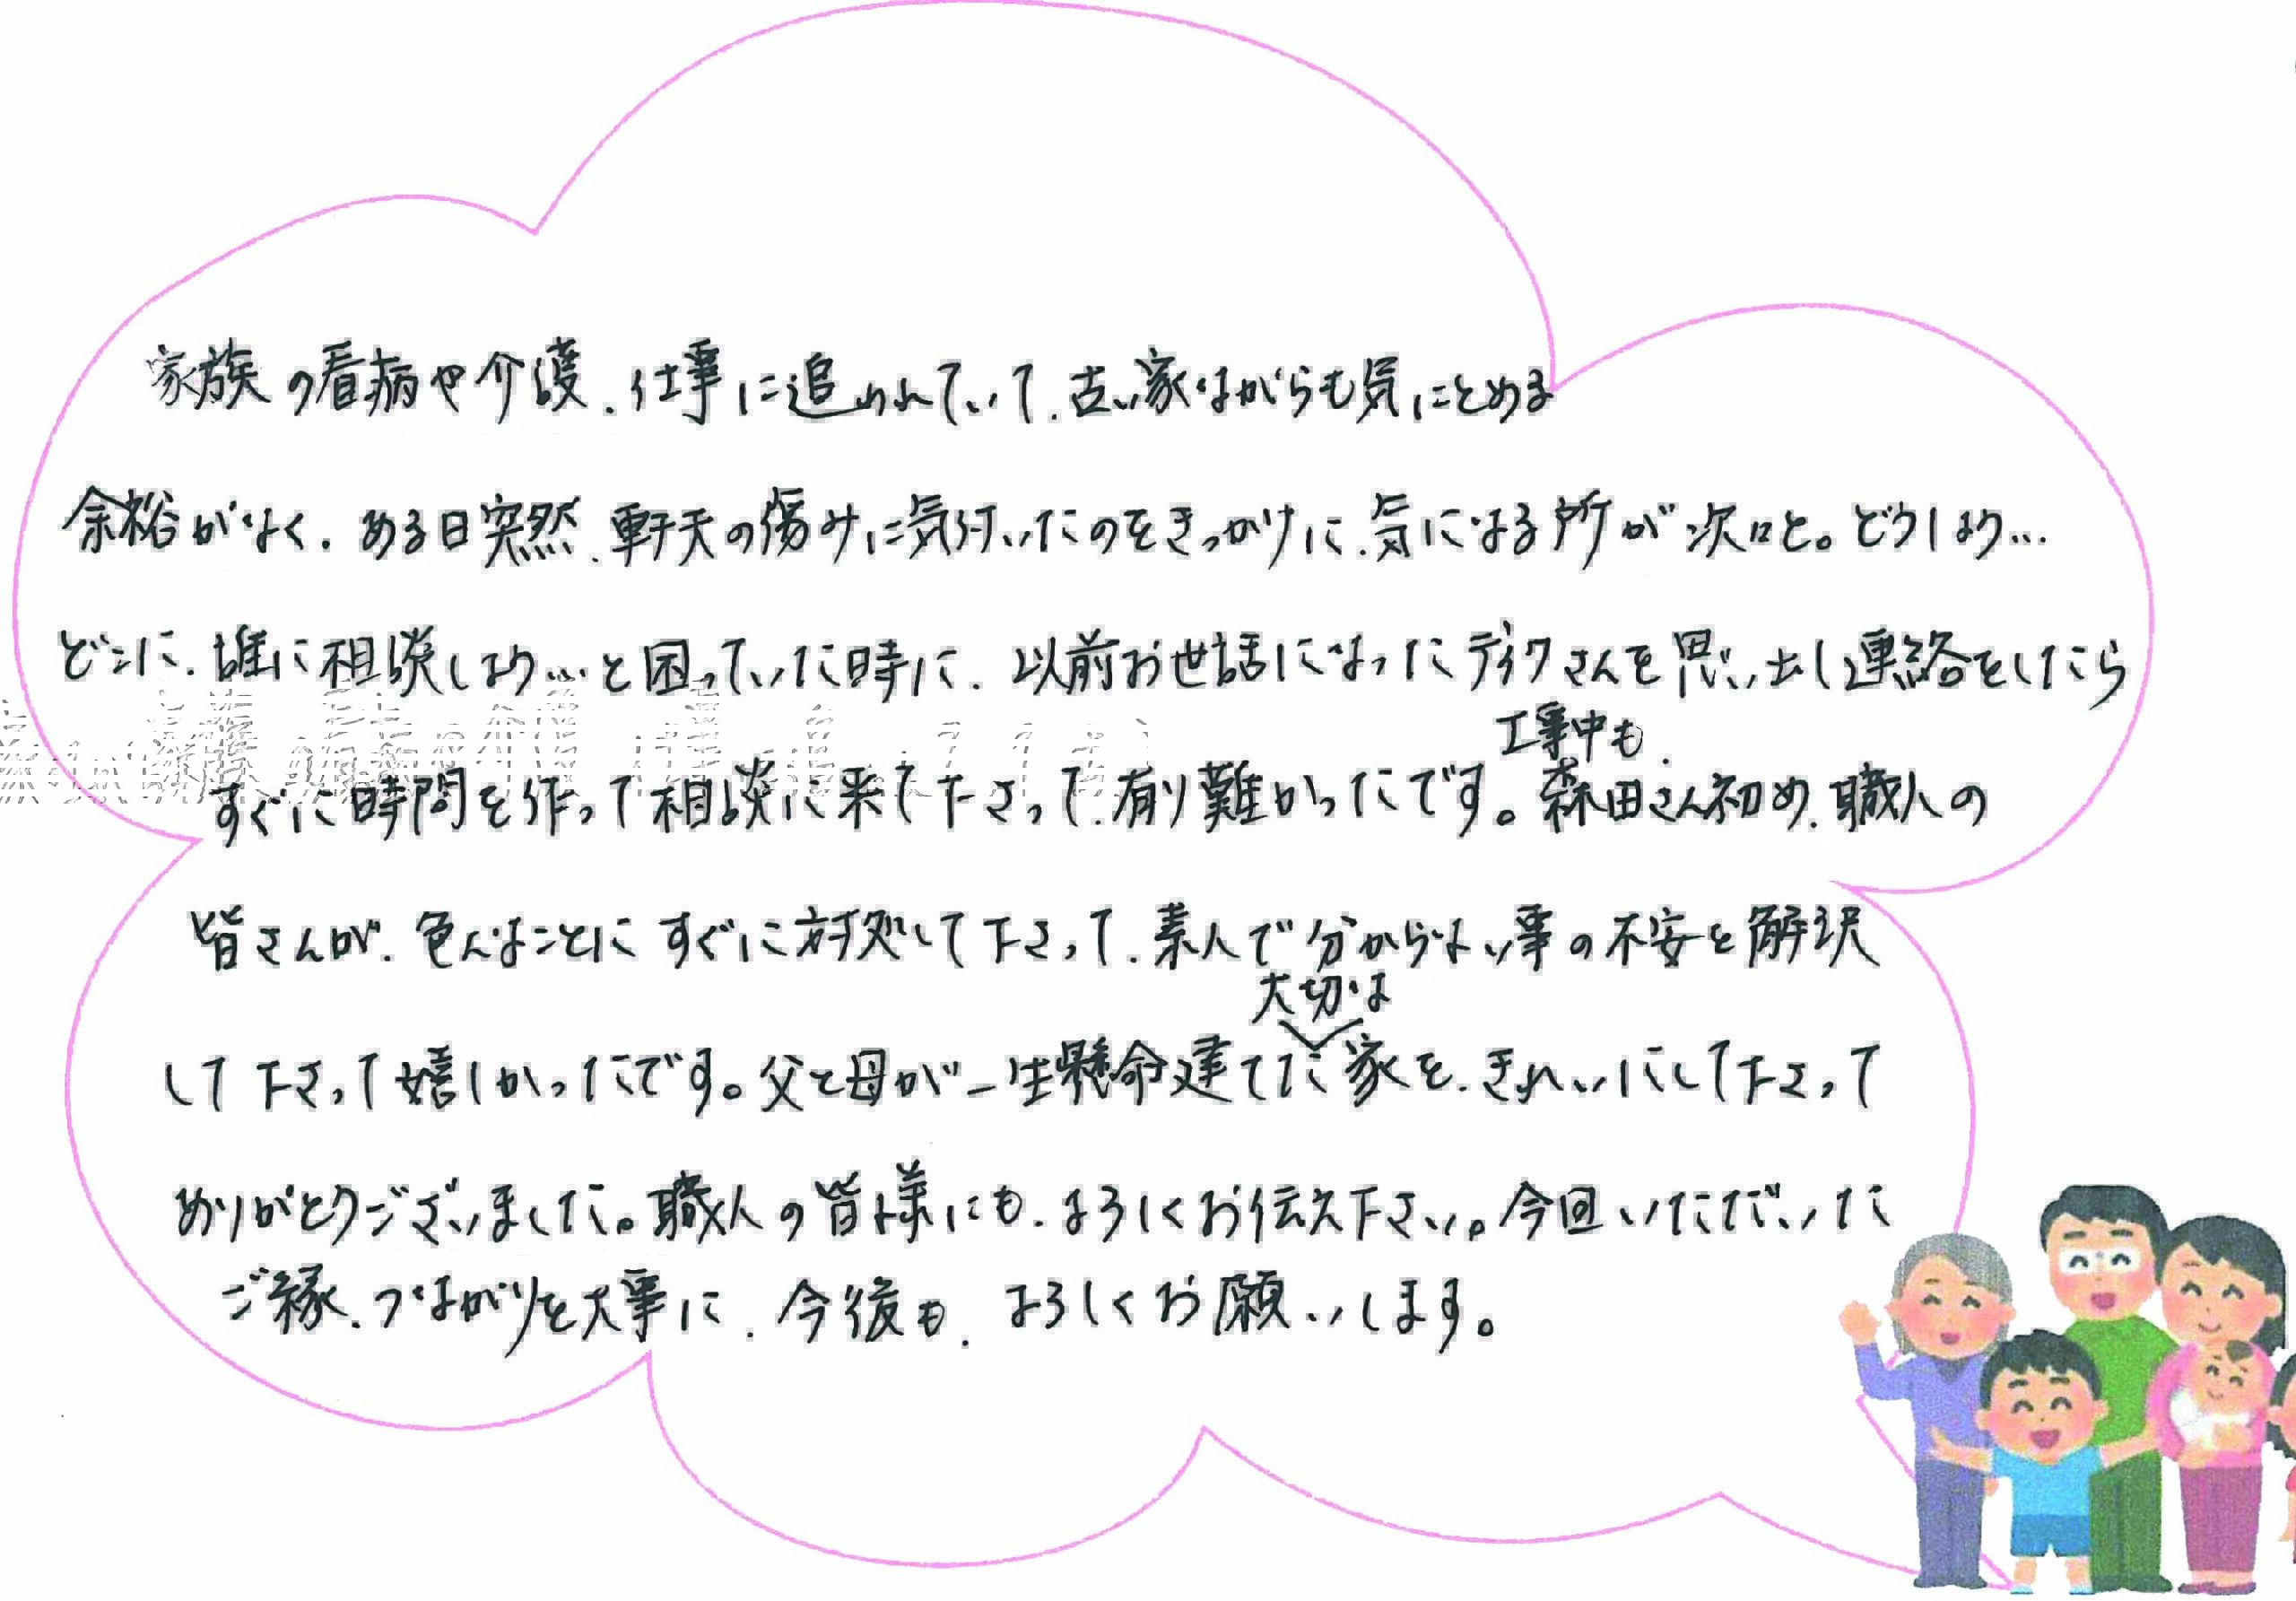 家族の看病や介護、仕事に追われていて、古い家ながらも気にとめる
余裕がなく、ある日突然、軒天の傷みに気付いたのをきっかけに、気になる所が次々と。どうしよう…
どこに、誰に相談しよう…と困っていた時に、以前お世話になったディクさんを思い出し連絡をしたら
工事中も、
すぐに時間を作って相談に来て下さって、有り難かったです。森田さん初め、職人の
皆さんが、色んなことにすぐに対処して下さって、素人で分からない事の不安を解決
大切な
して下さって嬉しかったです。父と母が一生懸命建てた家を、きれいにして下さって
ありがとうございました。職人の皆様にも、よろしくお伝え下さい。今回いただいた
ご縁、つながりを大事に、今後も、よろしくお願いします。